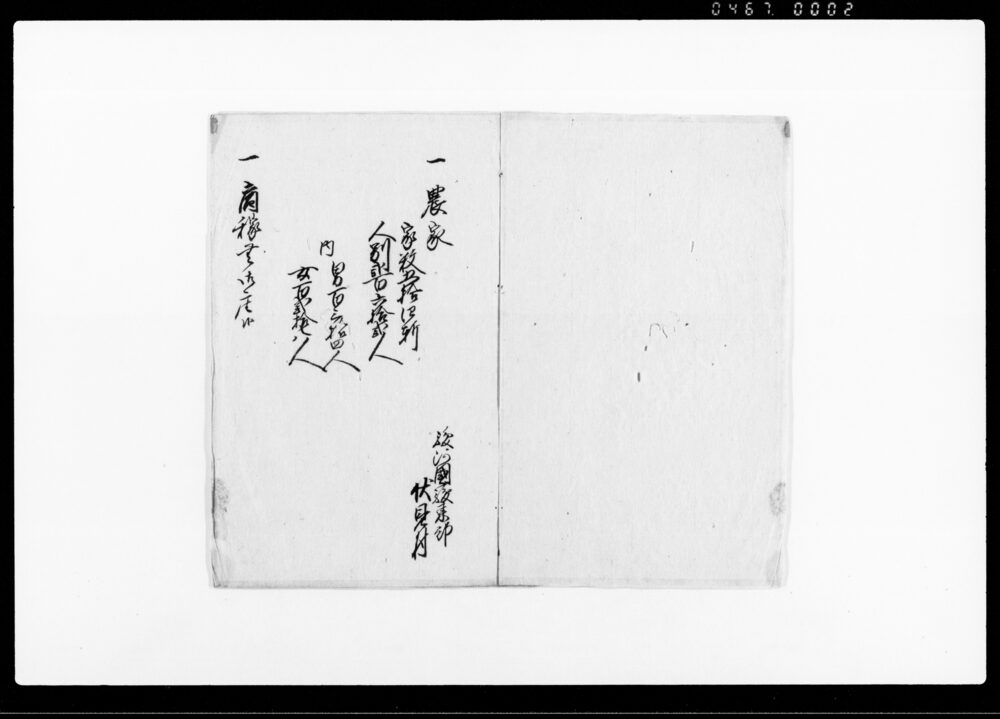 0467. 0002
駿河國駿東郡
伏見村
一 農家
家数五拾四軒
人別弐百六拾弐人
内 男百三拾四人
女百弐拾八人
一 商稼無御座候